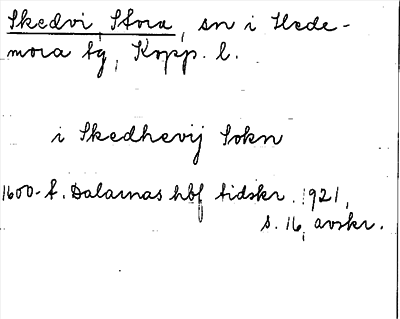 Skedvi, Stora, sn i Hede-
mora tg, Kopp. l.
i Skedhevij Sokn
1600-t. Dalarnas hbf tidskr. 1921,
s. 16, avskr.